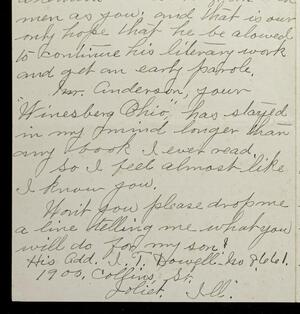 men as you: and that is our
only hope that he be alowed
to continue his literary work
and get an early parole.
Mr. Anderson, your
"Winesberg Ohio," has stayed
in my mind longer than
any book I ever read.
So I feel almost like
I know you.
Won't you please drop me
a line telling me what you
will do for my son?
His Add. I. T. Dowell-No 8661.
1900, Collins, St.
Joliet, Ill.